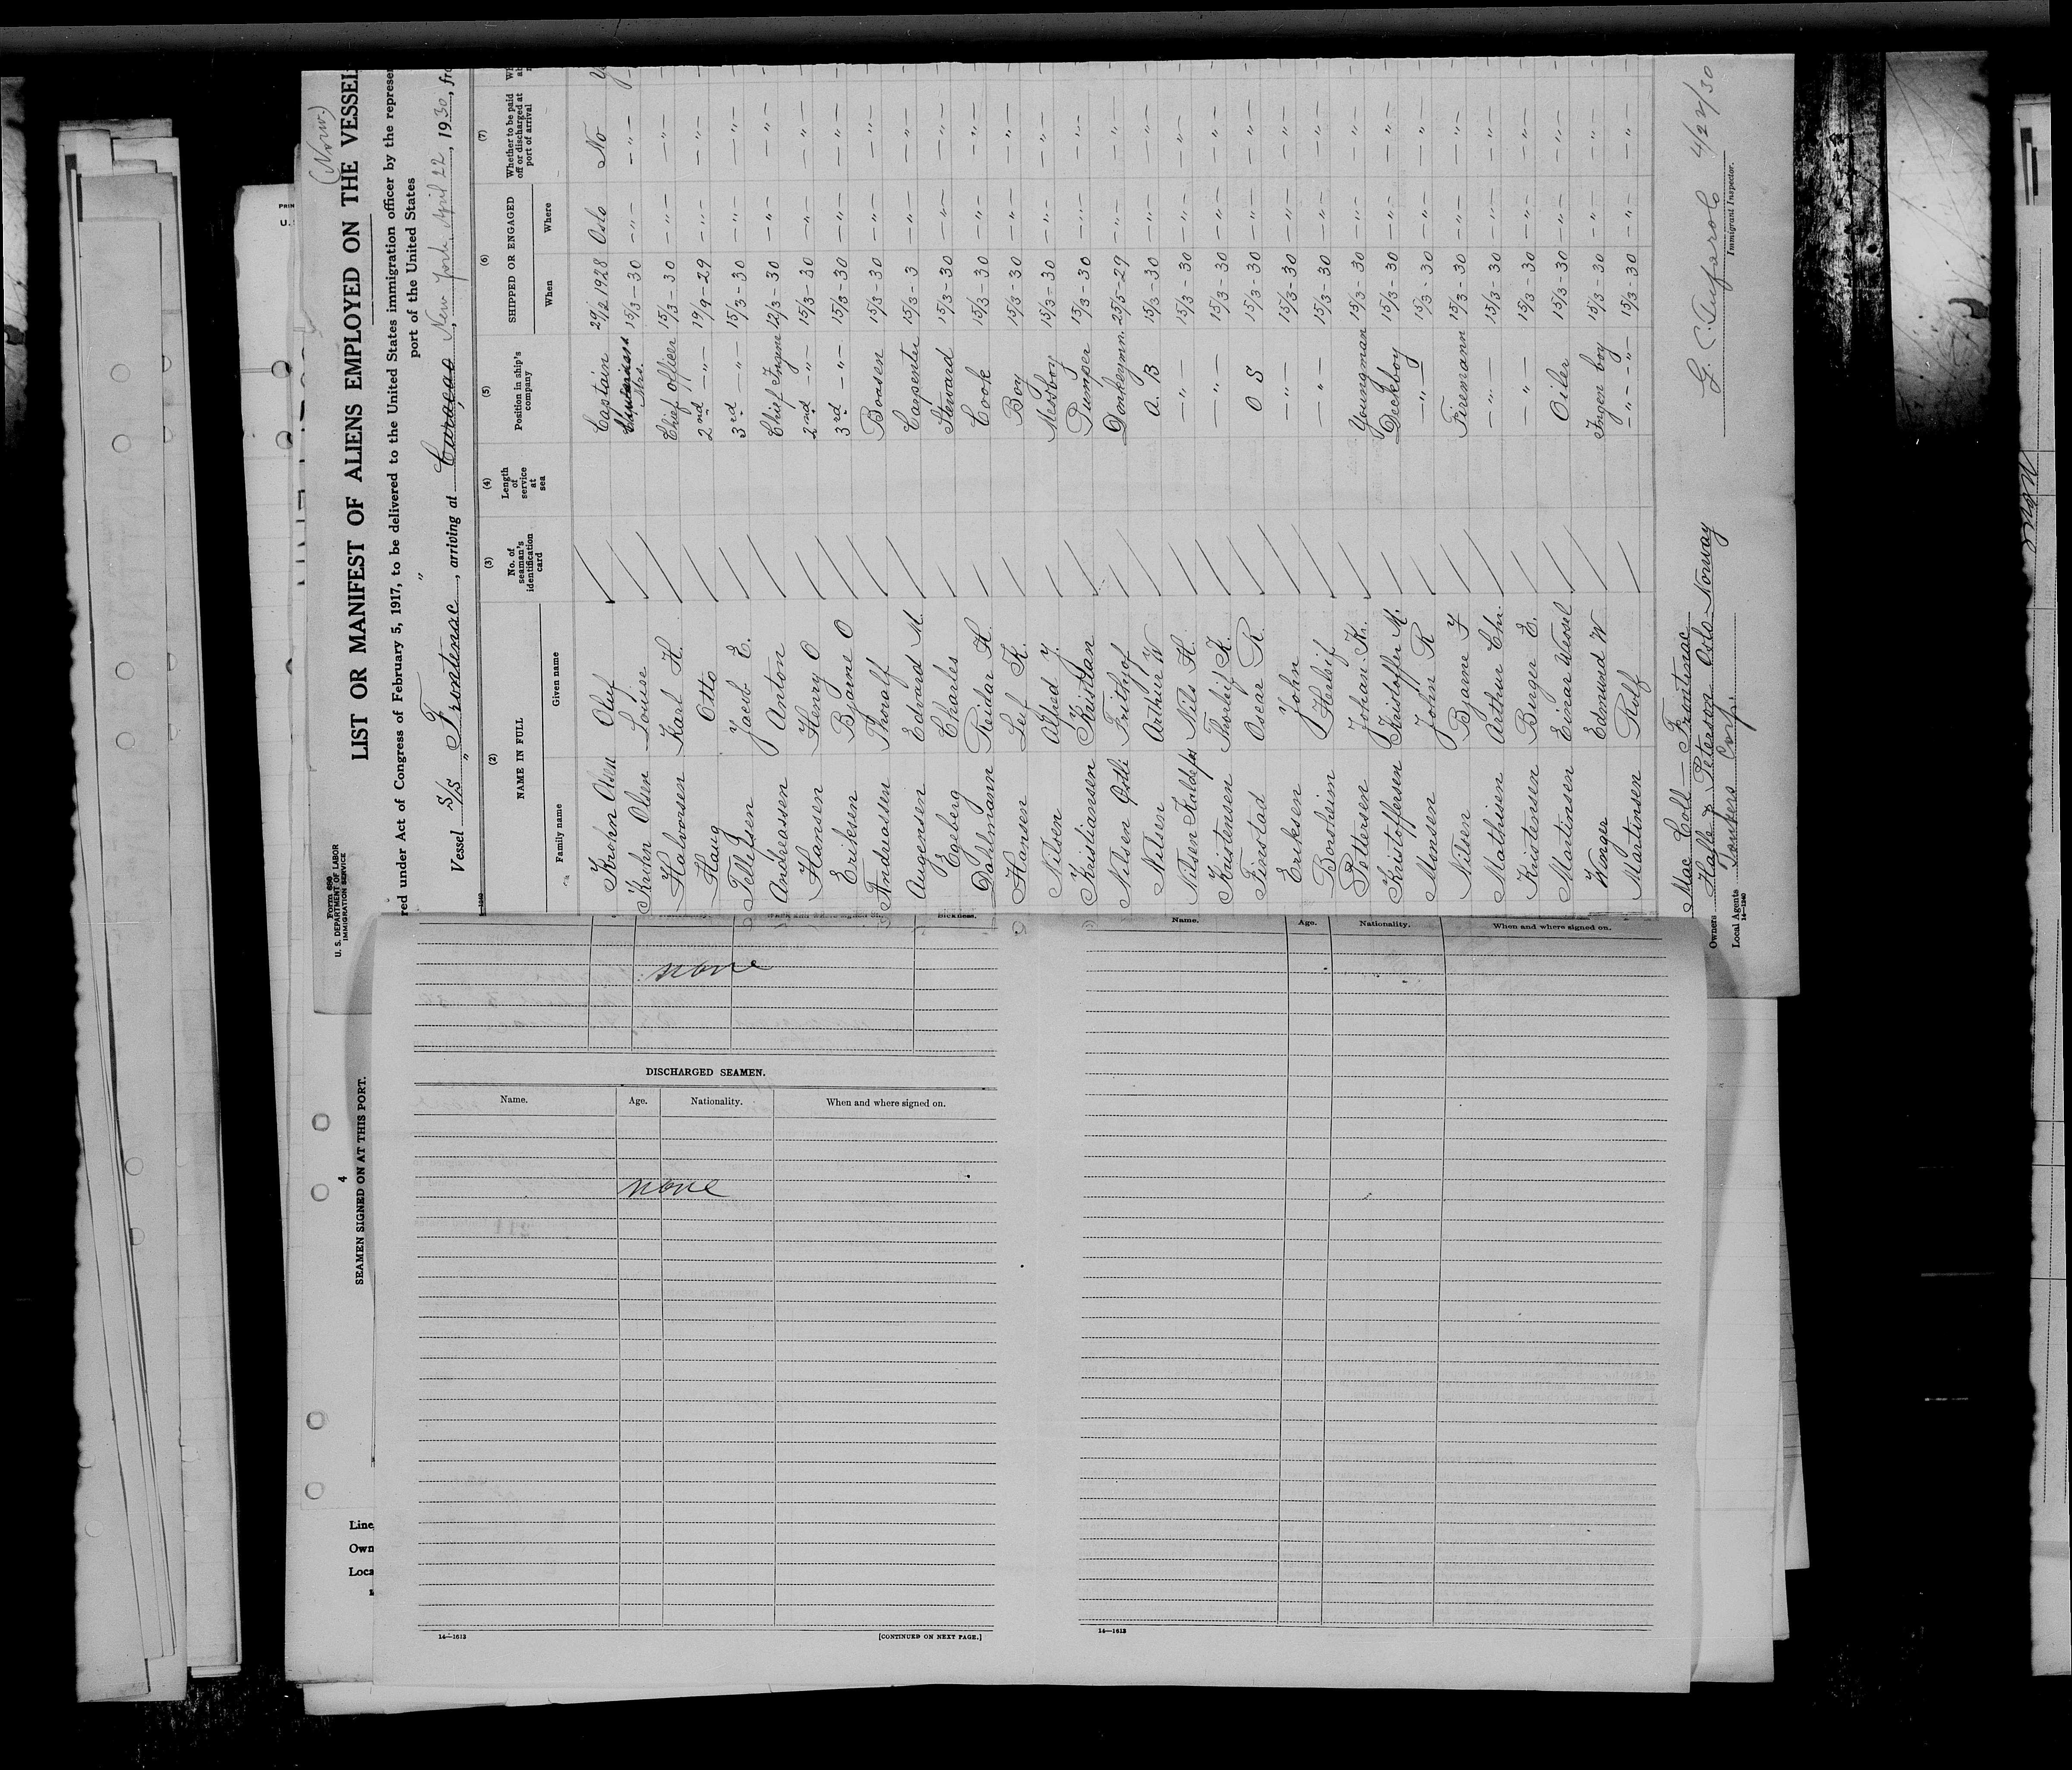 Form 680
U. S. DEPARTMENT OF LABOR
IMMIGRATION SERVICE
(Norw.)
LIST OR MANIFEST OF ALIENS EMPLOYED ON THE VESSEL
red under Act of Congress of February 5, 1917, to be delivered to the United States immigration officer by the represen
port of the United States
Vessel S/S "Frontenac", arriving at Curacao, New York, April 22, 1930, fro
(2) (3) (4) (5) (6) (7)
NAME IN FULL No. of seaman's identification card Length of service at sea Position in ship's company SHIPPED OR ENGAGED Whether to be paid off or discharged at port of arrival
Family name Given name When Where
Krohn Olsen Oluf Captain 29/12 1928 Oslo No
Krohn Olsen Louise Mrs. 15/3-30 -"- -"-
Halvorsen Karl H. Chief officer 15/3-30 -"- -"-
Haug Otto 2nd -"- 19/9-29 -"- -"-
Tellefsen Jacob E. 3rd -"- 15/3-30 -"- -"-
Andreassen Anton Chief Ingen 12/3-30 -"- -"-
Hansen Henry O 2nd -"- 15/3-30 -"- -"-
Eriksen Bjarne O 3rd -"- 15/3-30 -"- -"-
Andreassen Thoralf Boasen 15/3-30 -"- -"-
Augensen Edvard M. Carpenter 15/3-3 -"- -"-
Egeberg Charles Steward 15/3-30 -"- -"-
Dahlmann Reidar H. Cook 15/3-30 -"- -"-
Hansen Leif K. Boy 15/3-30 -"- -"-
Nilsen Alfred J. Messboy 15/3-30 -"- -"-
Kristiansen Kristian Pumper 15/3-30 -"- -"-
Nilsen Østli Frithof Donkeymn. 25/5-29 -"- -"-
Nilsen Arthur W A. B 15/3-30 -"- -"-
Nilsen Nils H. -"- 15/3-30 -"- -"-
Kristensen Thorleif K. -"- 15/3-30 -"- -"-
Finstad Oscar R. O S 15/3-30 -"- -"-
Eriksen John -"- 15/3-30 -"- -"-
Borsheim Herleif -"- 15/3-30 -"- -"-
Pettersen Johan K. Youngman 15/3-30 -"- -"-
Kristoffersen Kristoffer M. Deckboy 15/3-30 -"- -"-
Monsen John R -"- 15/3-30 -"- -"-
Nilsen Bjarne F Firemann 15/3-30 -"- -"-
Mathisen Arthur Chr. -"- 15/3-30 -"- -"-
Kristensen Birger E. -"- 15/3-30 -"- -"-
Martinsen Einar Wessel Oiler 15/3-30 -"- -"-
Winger Edmund W Ingen boy 15/3-30 -"- -"-
Martinsen Rolf -"- -"- 15/3-30 -"- -"-
Mac Coll - Frontinac
Owners Halle & Peterson Oslo Norway
Local Agents Tankers Corp.
14—1240
G. C. 4/22/30
Immigrant Inspector.
4
SEAMEN SIGNED ON AT THIS PORT.
Line
Own
Loca
Sickness.
none
DISCHARGED SEAMEN.
Name. Age. Nationality. When and where signed on.
none
14—1613
[CONTINUED ON NEXT PAGE.]
Name. Age. Nationality. When and where signed on.
14—1613